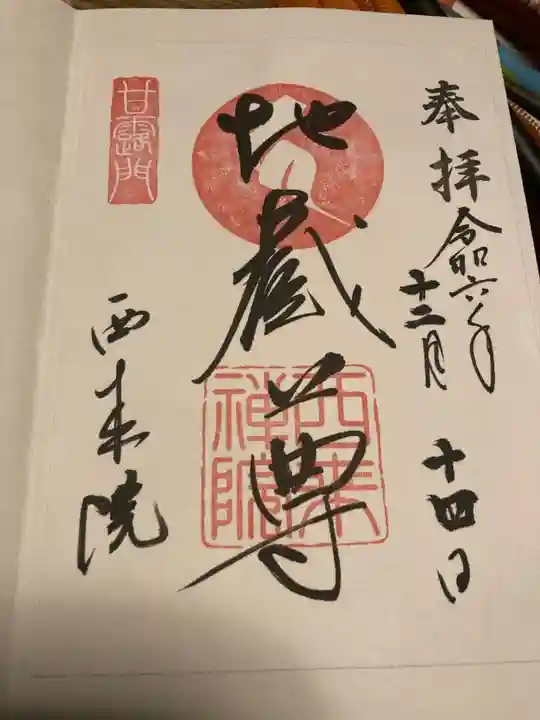 奉拝
令和六年
十二月
十四日
地蔵尊
西来禅院
甘露門
西来院